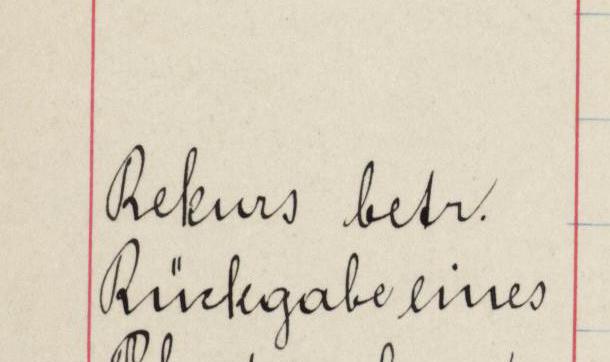 Rekurs betr.
Rückgabe eines